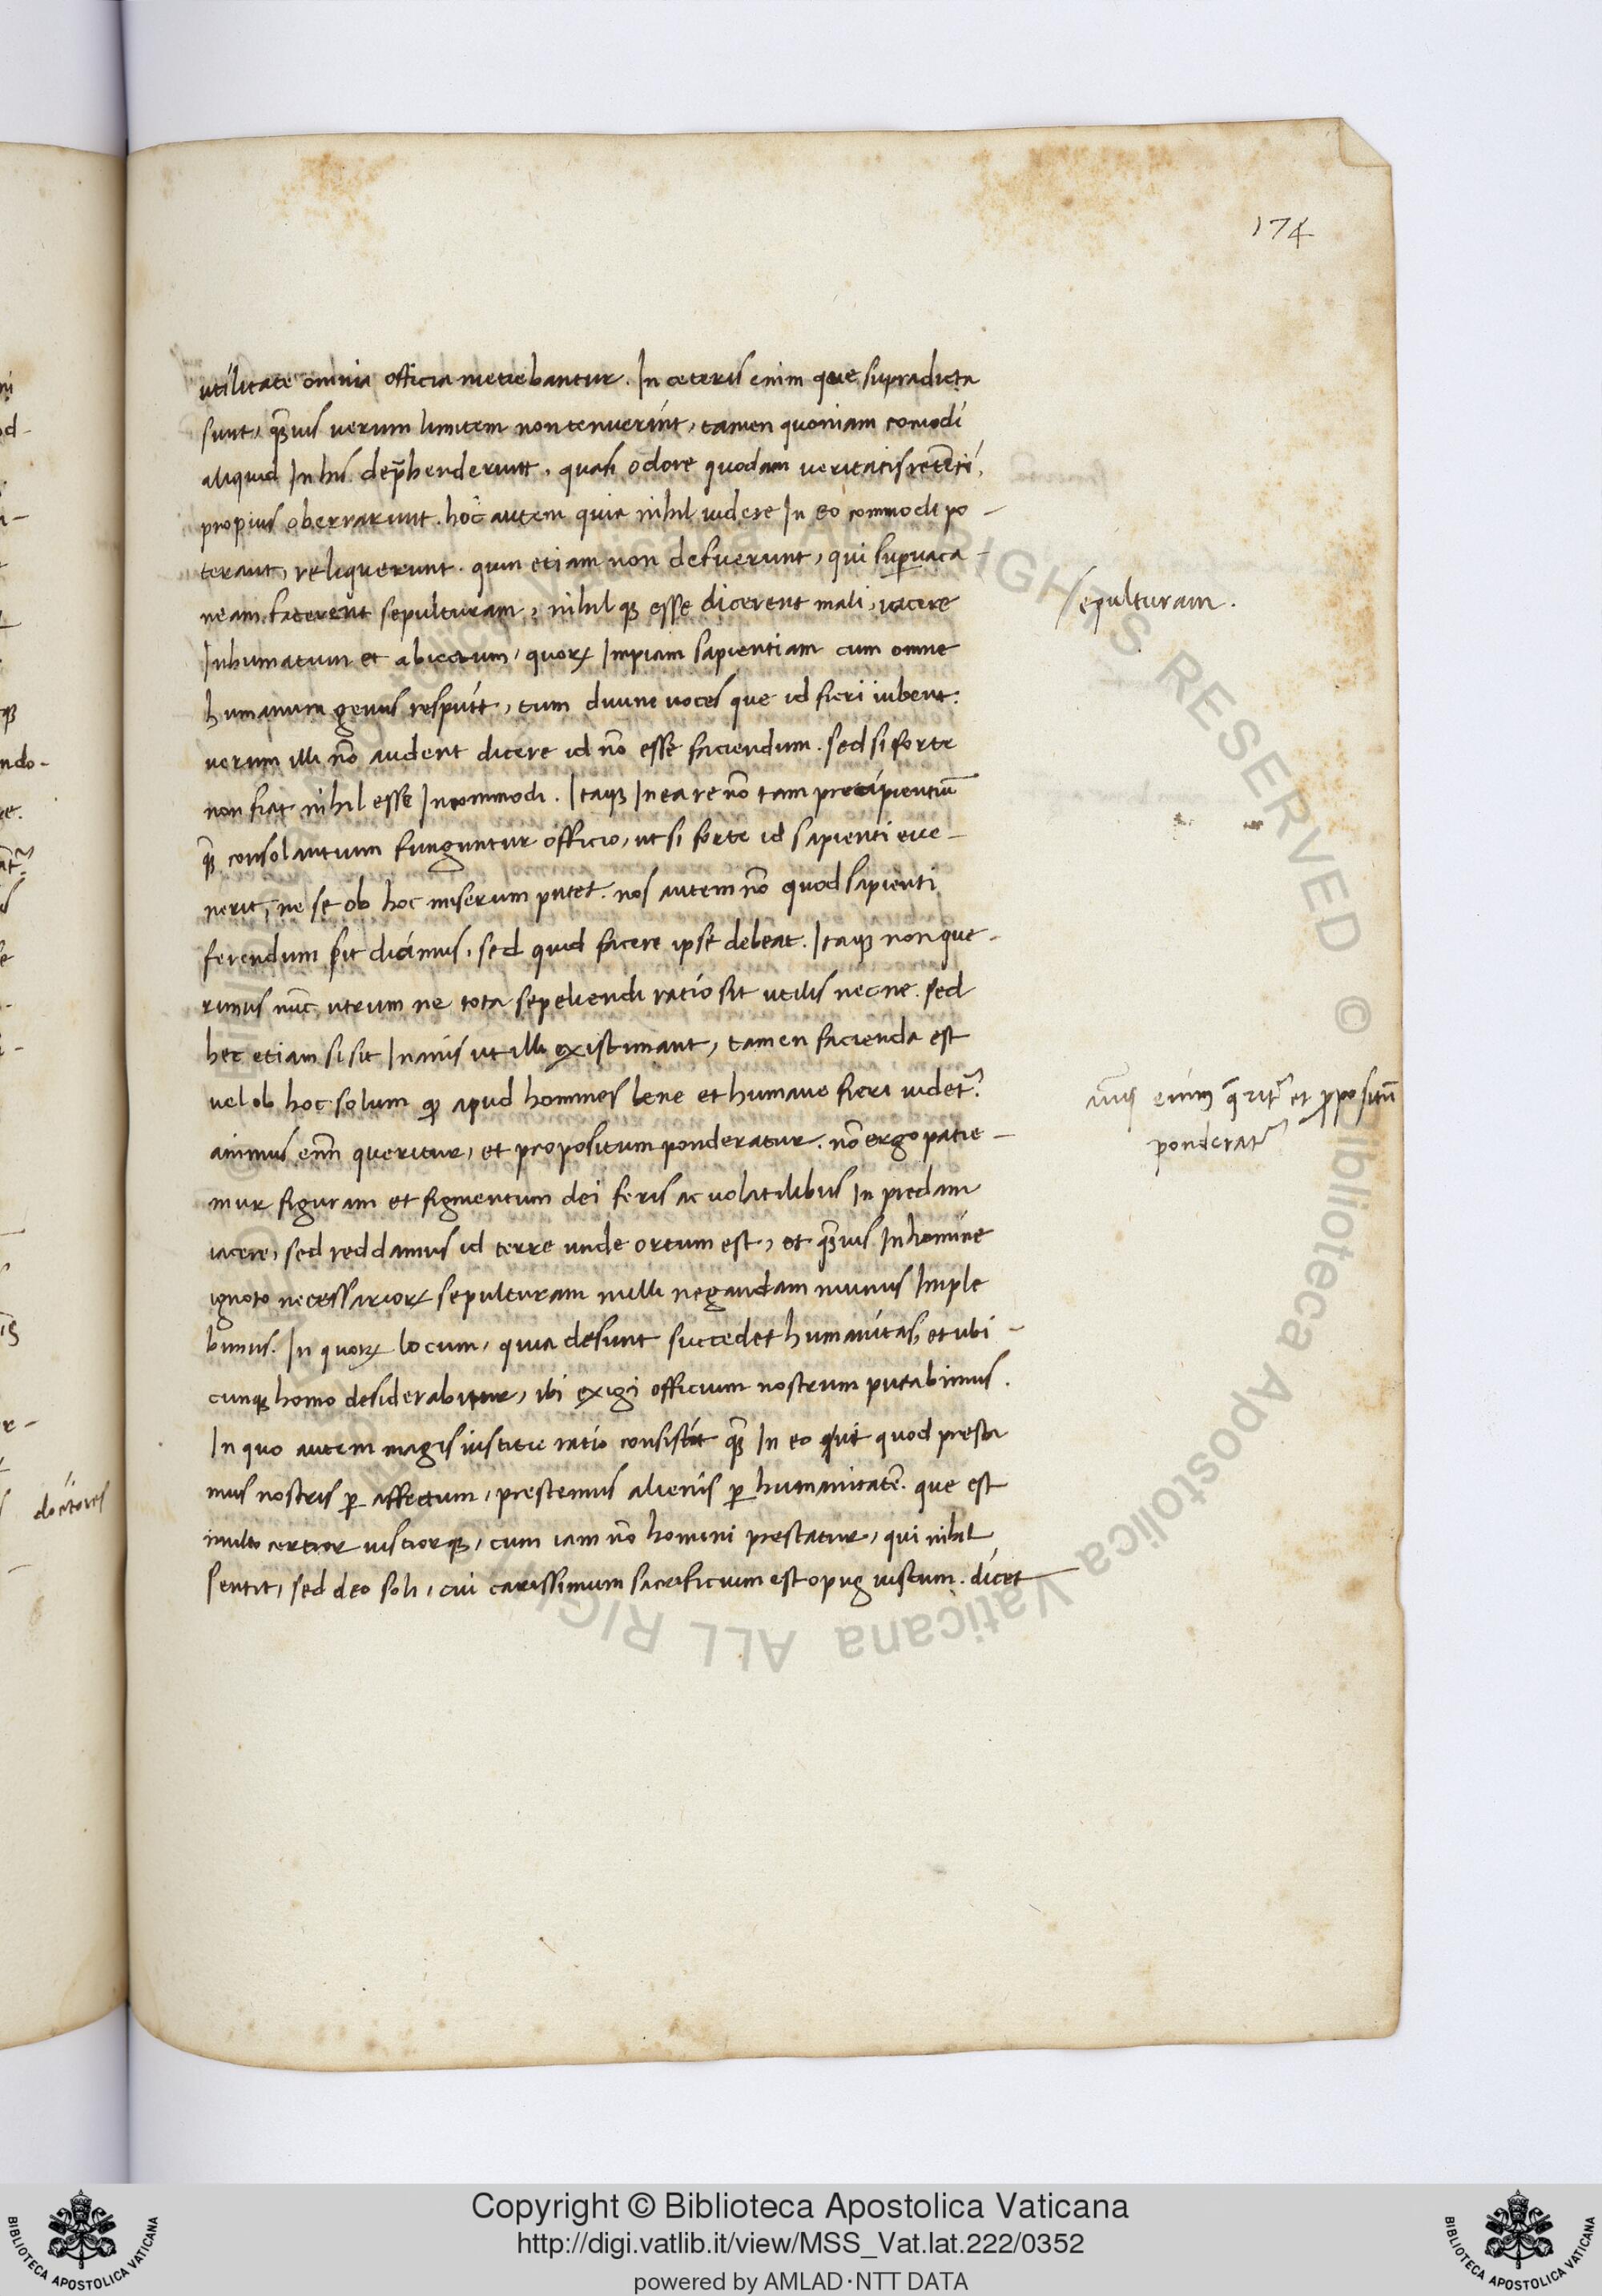 174
utilitate omnia officia metiebantur. In ceteris enim que supradicta
sunt, q̃uis uerum limitem non tenuerint, tamen quoniam comodi
aliquid In his dep̃henderunt, quasi odore quodam ueritatis retẽti,
propius oberrarunt. hoc autem quia nihil uidere In eo commodi po-
terant, reliquerunt. quin etiam non defuerunt, qui sup̱uaca-
neam facerent sepulturam, nihil qꝫ esse dicerent mali, iacere
Inhumatum et abiectum, quoꝝ Impiam sapientiam cum omne
humanum genus respuit, tum diuine uoces que id fieri iubent.
uerum illi nõ audent dicere id nõ esse faciendum. sed si forte
non fiat nihil esse Incommodi. Itaqꝫ In ea re nõ tam precipientiũ
q̃ consolantium funguntur officio, ut si forte id sapienti eue-
nerit, ne se ob hoc miserum putet. nos autem nõ quod sapienti
ferendum sit dicimus, sed quid facere ipse debeat. Itaqꝫ non que-
rimus nũc utrum ne tota sepeliendi ratio sit utilis nec ne. sed
hec etiam si sit Inanis ut illi existimant, tamen facienda est
uel ob hoc solum qđ apud homines bene et humane fieri uidet᷑.
animus enĩ queritur, et propositum ponderatur. nõ ergo patie-
mur figuram et figmentum dei feris ac uolatilibus In predam
iacere, sed reddamus id terre unde ortum est, et q̃uis In homine
ignoto necessarioꝝ sepulturam nulli negandam munus Imple
bimus. In quoꝝ locum, quia desunt succedet humanitas, et ubi-
cunqꝫ homo desiderabitur, ibi exigi officium nostrum putabimus.
In quo autem magis iustitie ratio consistit q̃ In eo quod presta
mus nostris ꝑ affectum, prestemus alienis ꝑ humanitatẽ. que est
multo certior iustiorqꝫ, cum iam nõ homini prestatur, qui nihil
sentit, sed deo soli, cui carissimum sacrificium est opus iustum. dicet
Sepulturam.
aĩus enim q̃rit᷑ et ꝓpositũ
ponderat᷑
doctores
Copyright © Biblioteca Apostolica Vaticana
http://digi.vatlib.it/view/MSS_Vat.lat.222/0352
powered by AMLAD·NTT DATA
BIBLIOTECA APOSTOLICA VATICANA
BIBLIOTECA APOSTOLICA VATICANA